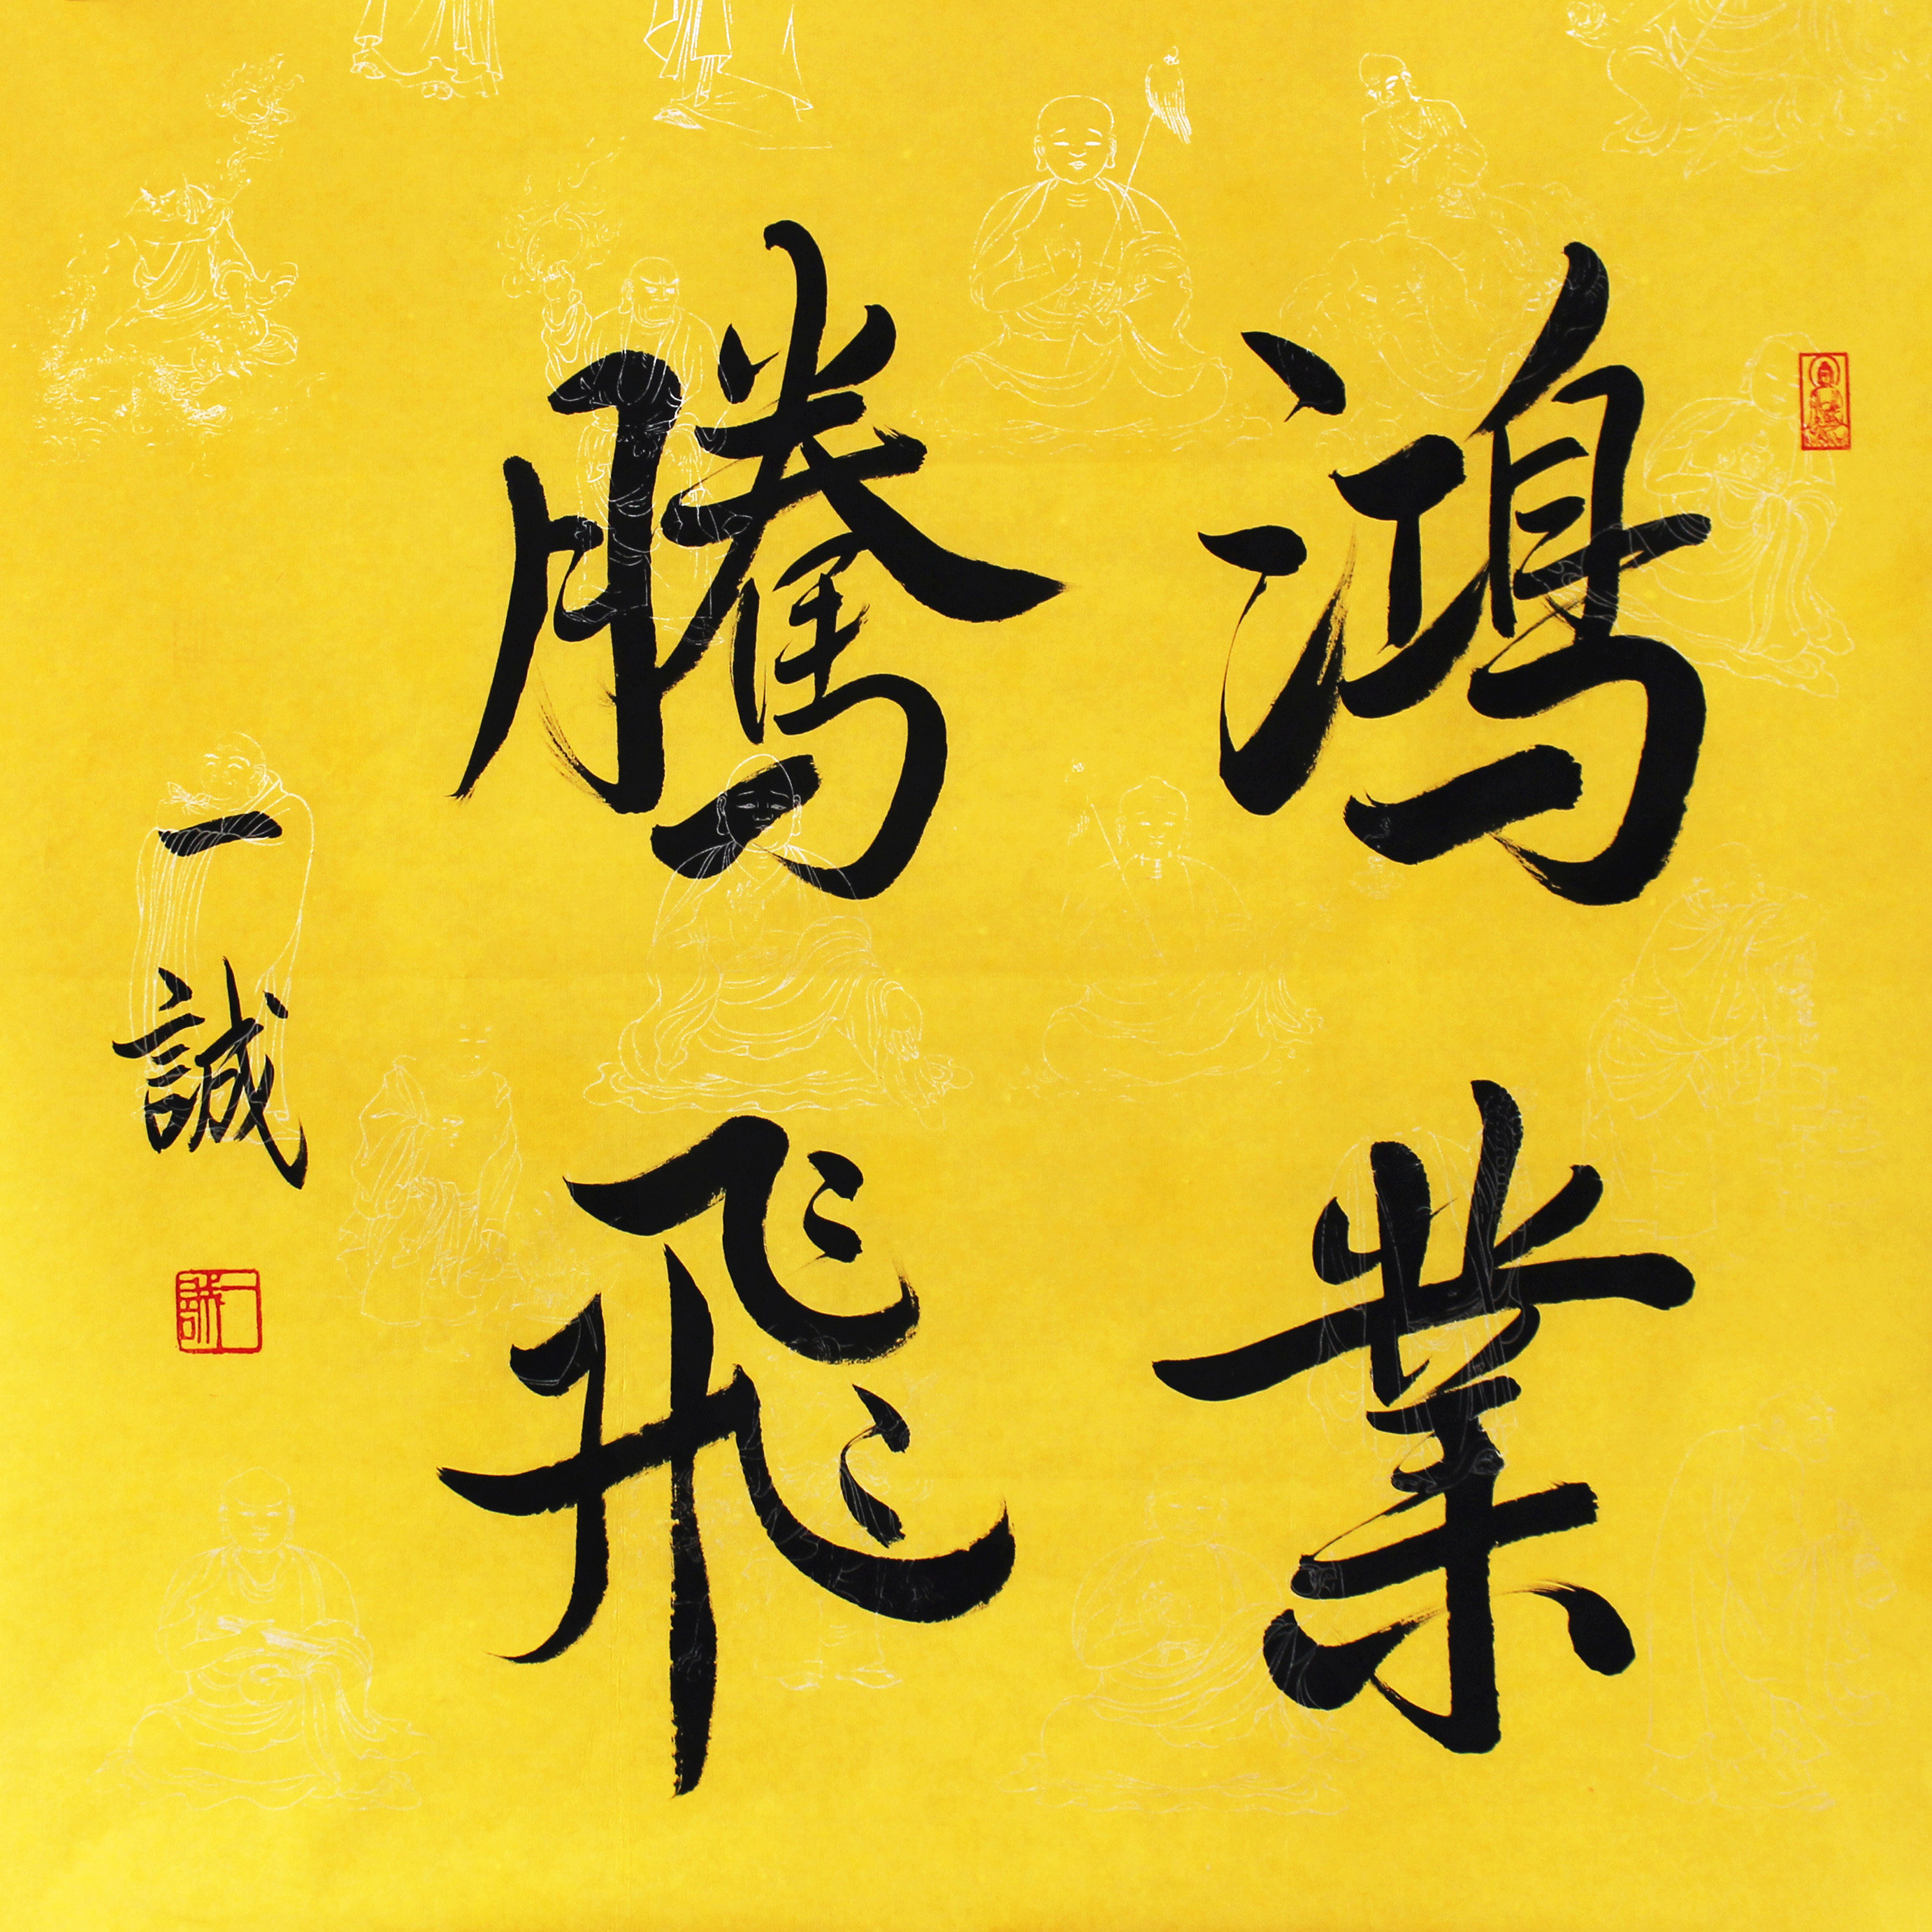 鴻業
騰飛
一誠
一誠